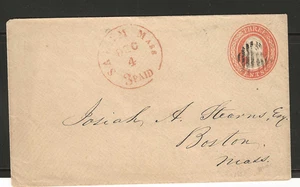 SALEM Mass
DEC
4
3 PAID
THREE
CENTS
Josiah A. Stearns, Esq
Boston,
Mass.